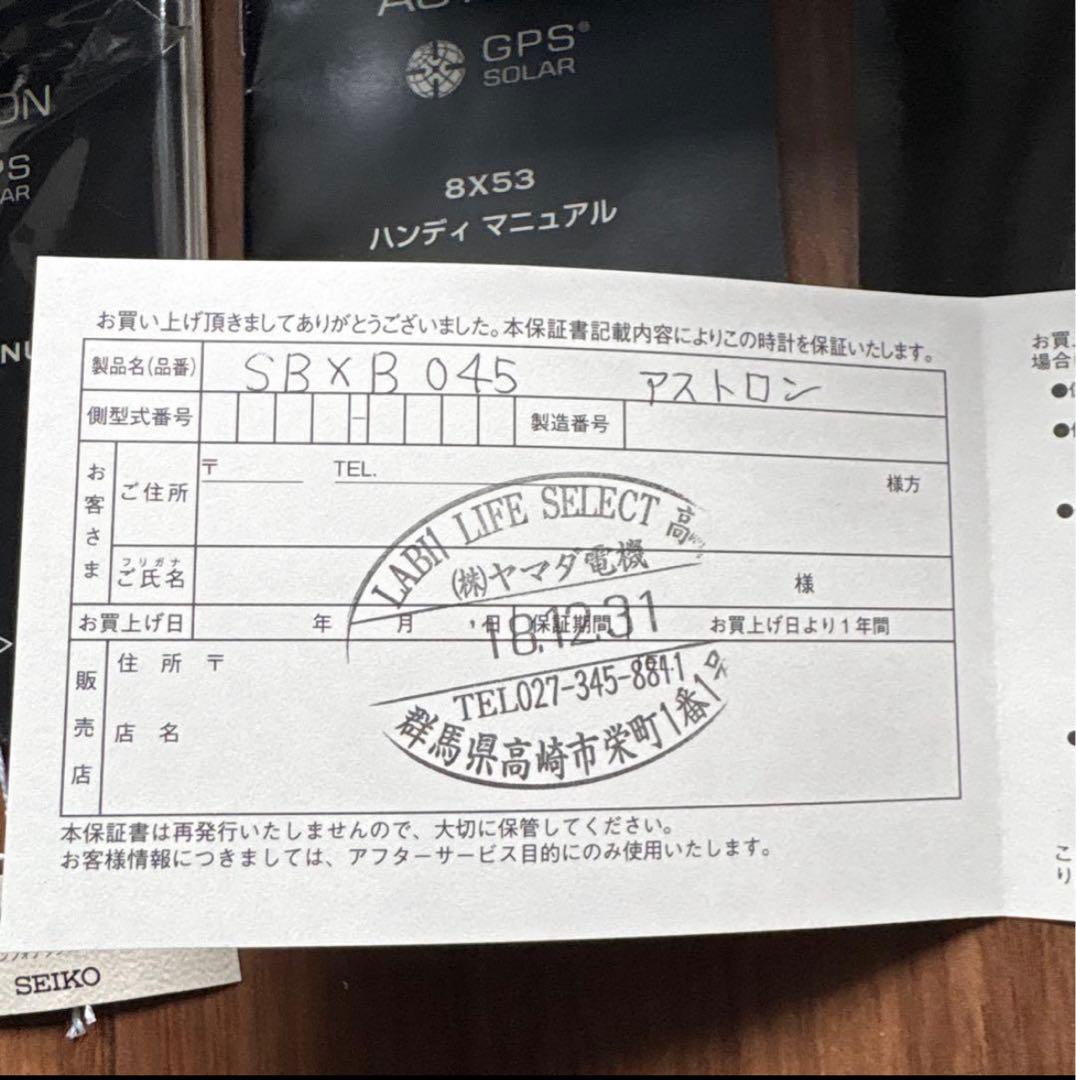 ON
GPS®
SOLAR
8X53
ハンディ マニュアル
お買い上げ頂きましてありがとうございました。本保証書記載内容によりこの時計を保証いたします。
製品名(品番) SBXB045 アストロン
側型式番号 - 製造番号
お客さま
ご住所 〒 TEL. 様方
フリガナ
ご氏名 様
お買上げ日 年 月 日 保証期間 お買上げ日より1年間
販売店
住所 〒
店名
LABI1 LIFE SELECT 高
(株)ヤマダ電機
18.12.31
TEL027-345-8841
群馬県高崎市栄町1番1号
本保証書は再発行いたしませんので、大切に保管してください。
お客様情報につきましては、アフターサービス目的にのみ使用いたします。
お買
場合
SEIKO